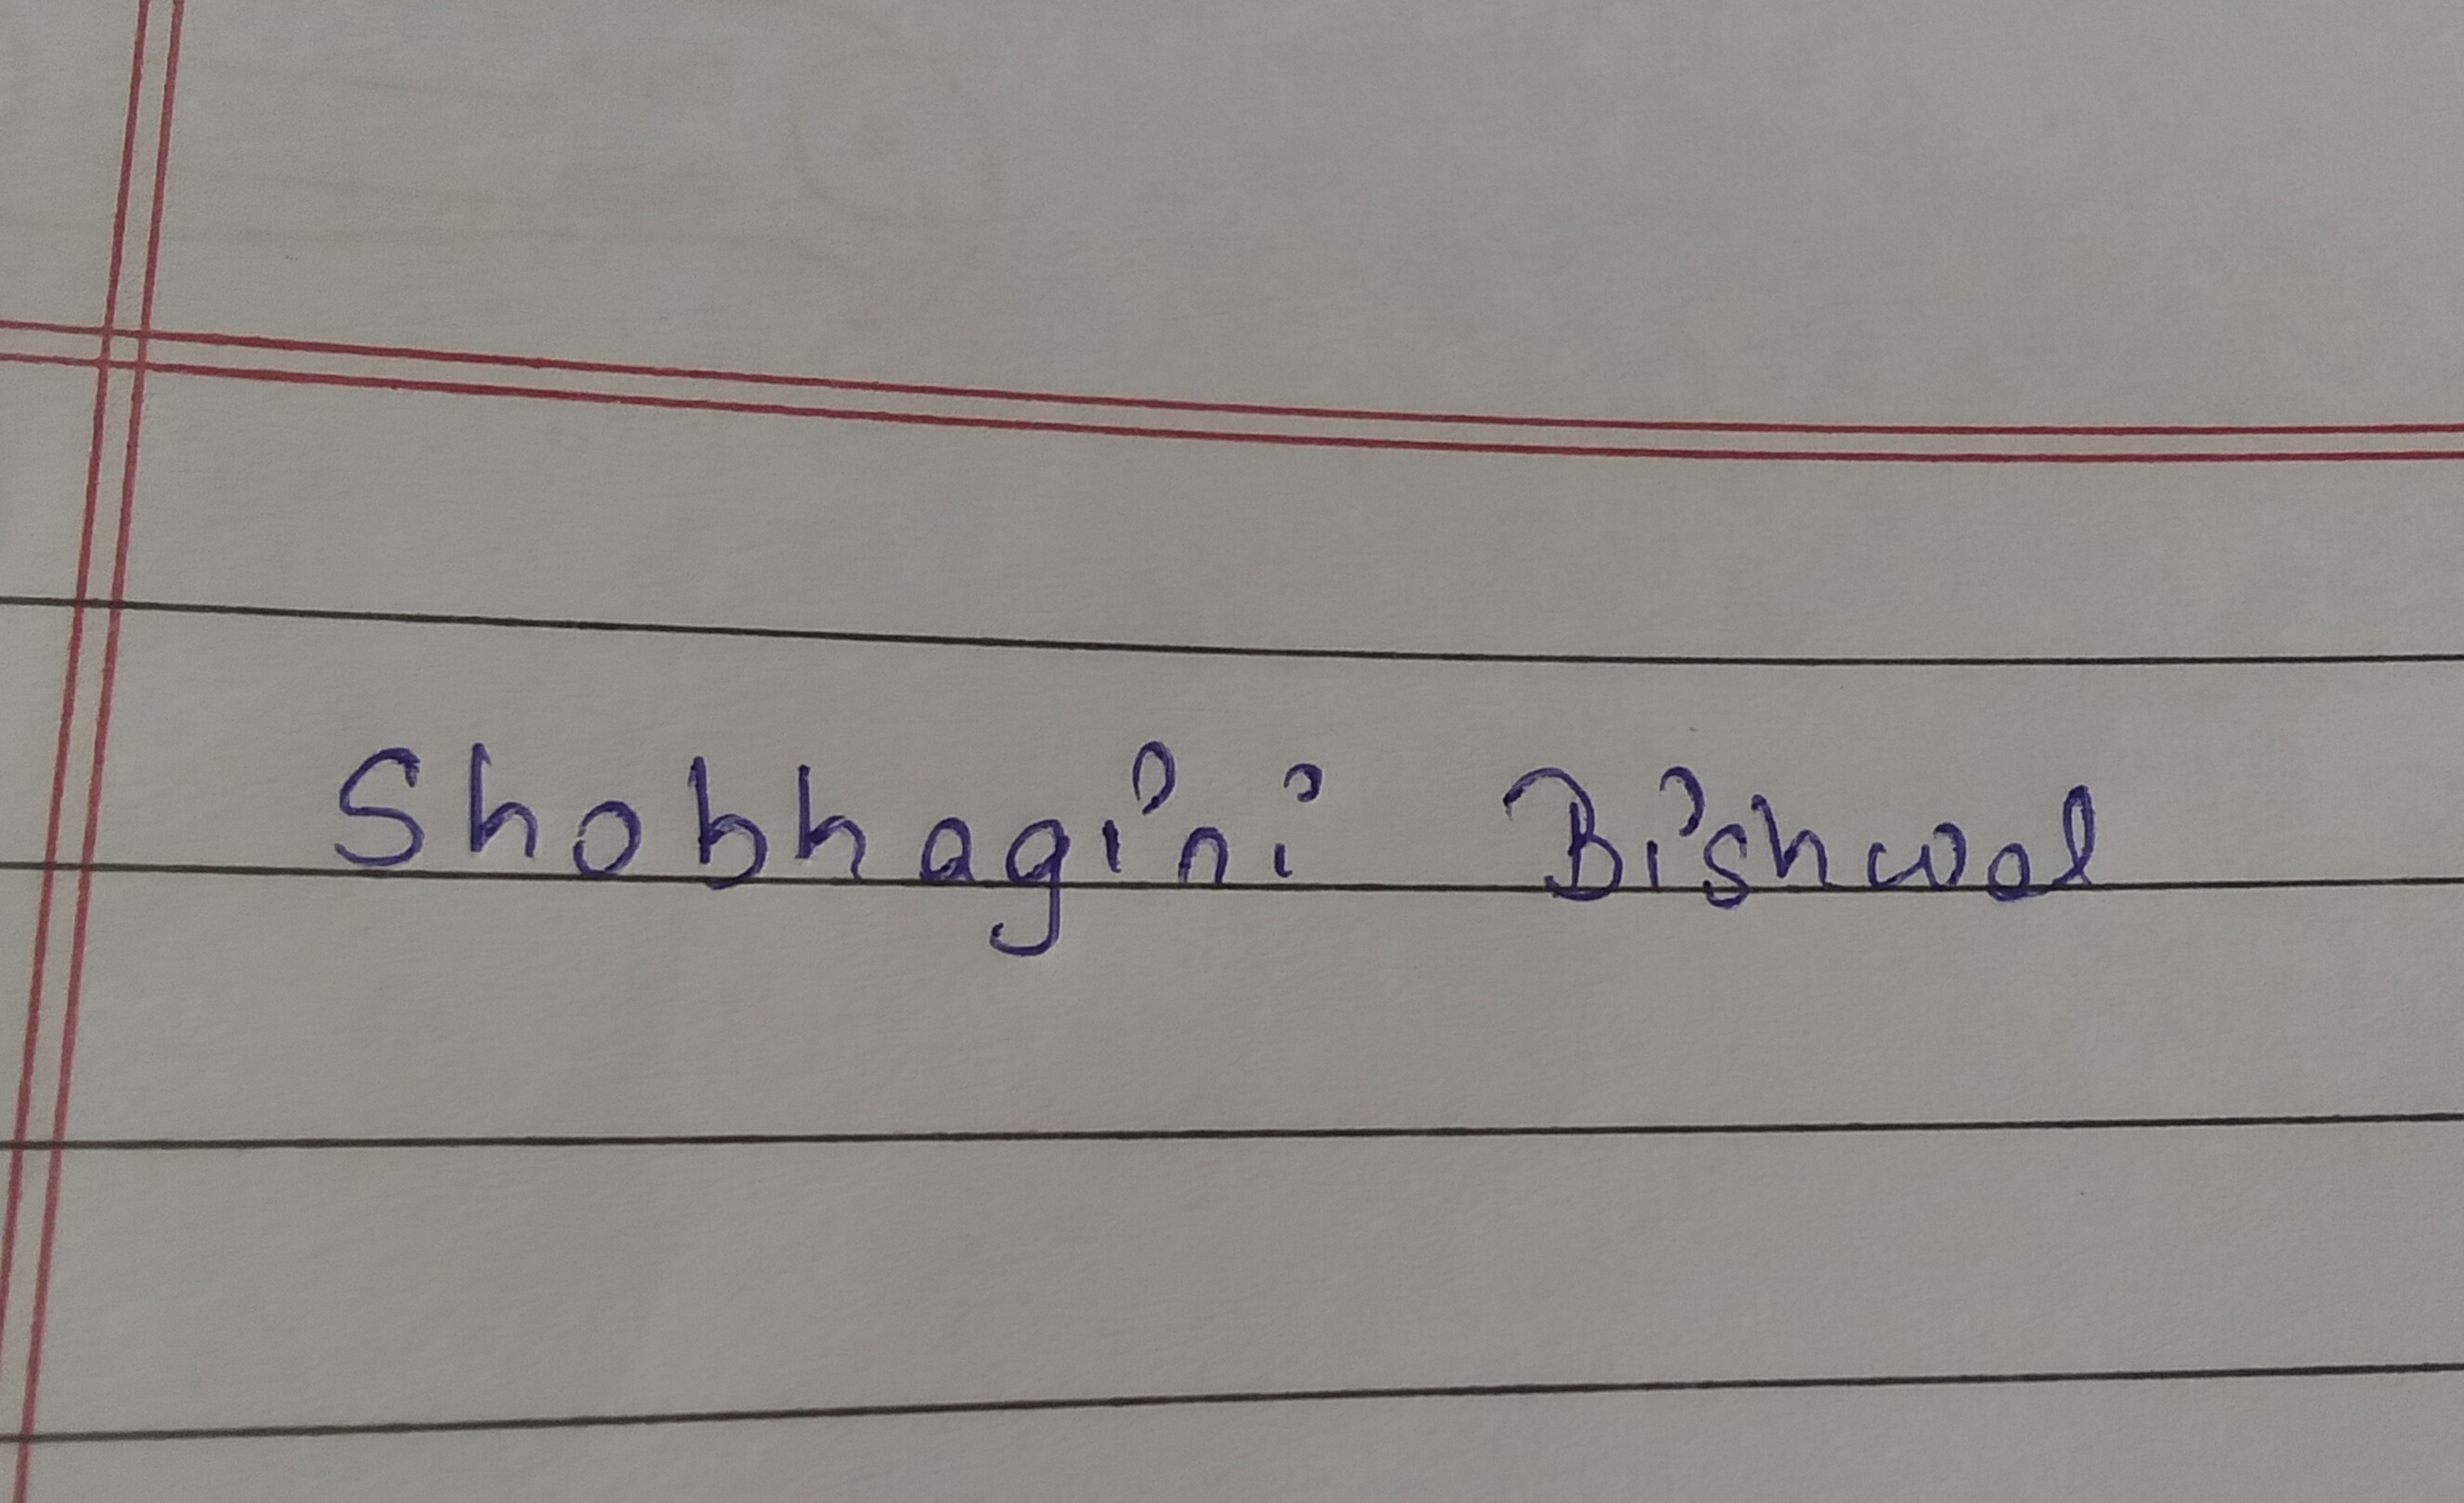 Shobhagini Bishwal